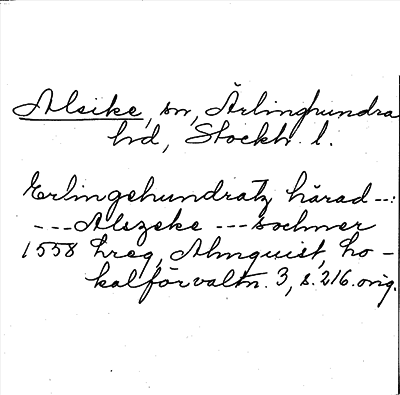 Alsike, sn, Ärlinghundra
hd, Stockh. l.
Erlingehundratz härad --:
--- Alszeke --- sochner
1558 Lreg, Almquist, Lo-
kalförvaltn. 3, s. 216. orig.